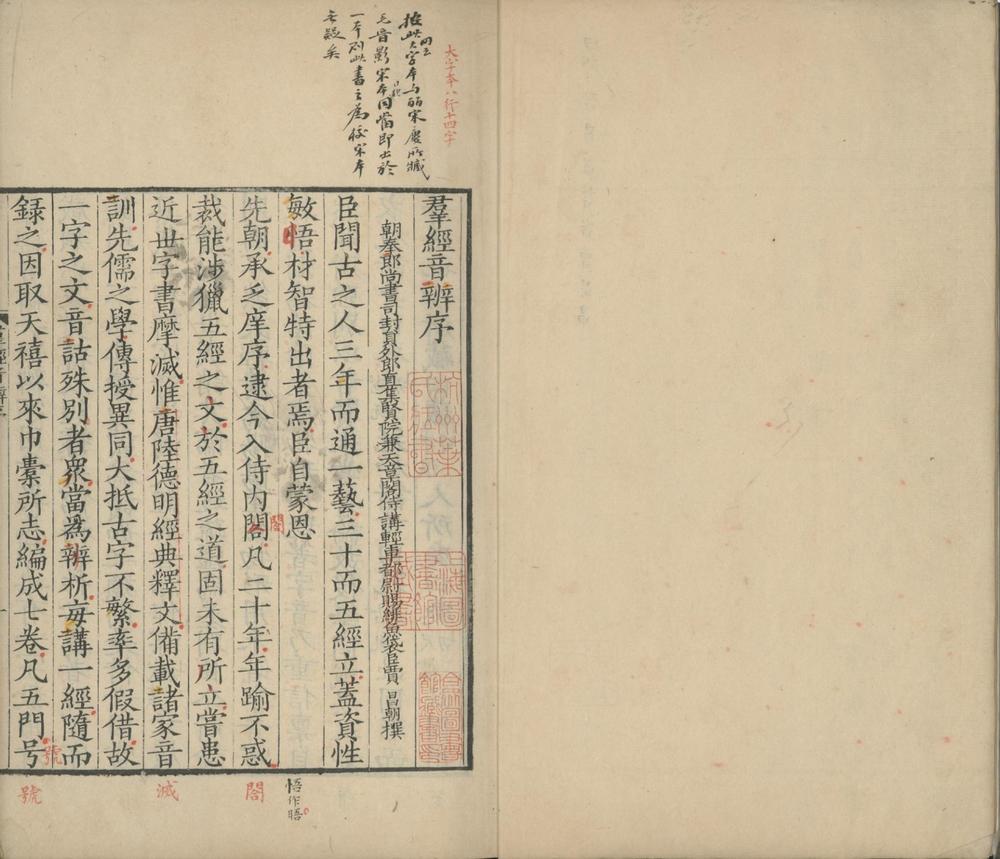 大字本八行十四字
按此大字本与皕宋廔所藏
毛音影宋本同當即出於
一本則此書之為後宋本
無疑矣
羣經音辨序
朝奉郎尚書司封員外郎直集賢院兼天章閣侍講輕車都尉賜緋魚袋臣賈昌朝撰
臣聞古之人三年而通一藝三十而五經立蓋資性
敏悟材智特出者焉臣自蒙恩
先朝承乏庠序逮今入侍內閣凡二十年年踰不惑
裁能涉獵五經之文於五經之道固未有所立嘗患
近世字書摩滅惟唐陸德明經典釋文備載諸家音
訓先儒之學傳授異同大抵古字不繁率多假借故
一字之文音詁殊別者衆當爲辨析每講一經隨而
錄之因取天禧以來巾橐所志編成七卷凡五門号
閣
號
悟作晤
閣
滅
號
上海圖書館藏